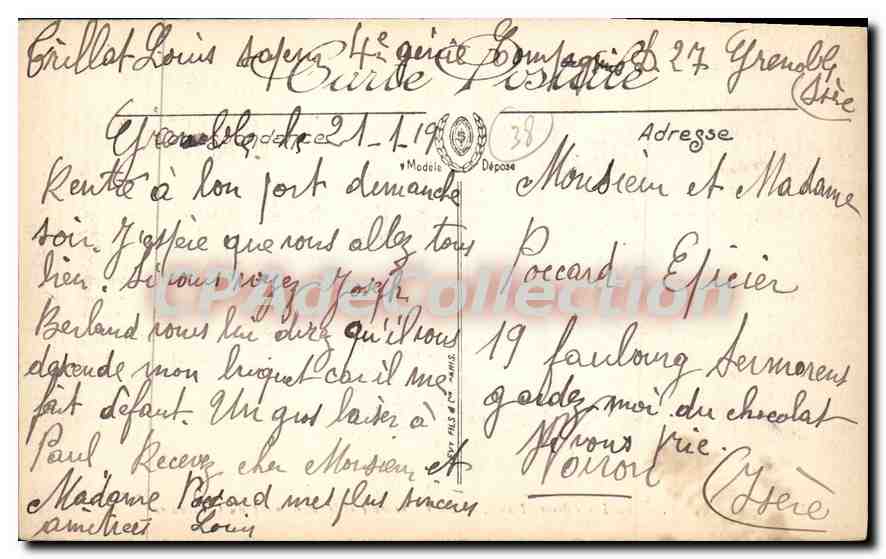 Trillat Louis sapeur 4e génie Compagnie 27 Grenoble
Isère
Carte Postale
Grenoble le 21-1-19
38
Adresse
Modèle Déposé
Rentré à bon port dimanche
soir. J'espère que vous allez tous
bien. Si vous voyez Joseph
Berland vous lui direz qu'il vous
descende mon briquet car il me
fait défaut. Un gros baiser à
Paul Recevez cher Monsieur et
Madame Poccard mes plus sincères
amitiées Louis
LEVY FILS & Cie PARIS.
Monsieur et Madame
Poccard Epicier
19 faubourg Sermorens
gardez moi du chocolat
je vous prie.
Voiron
Isère
CPAdeCollection